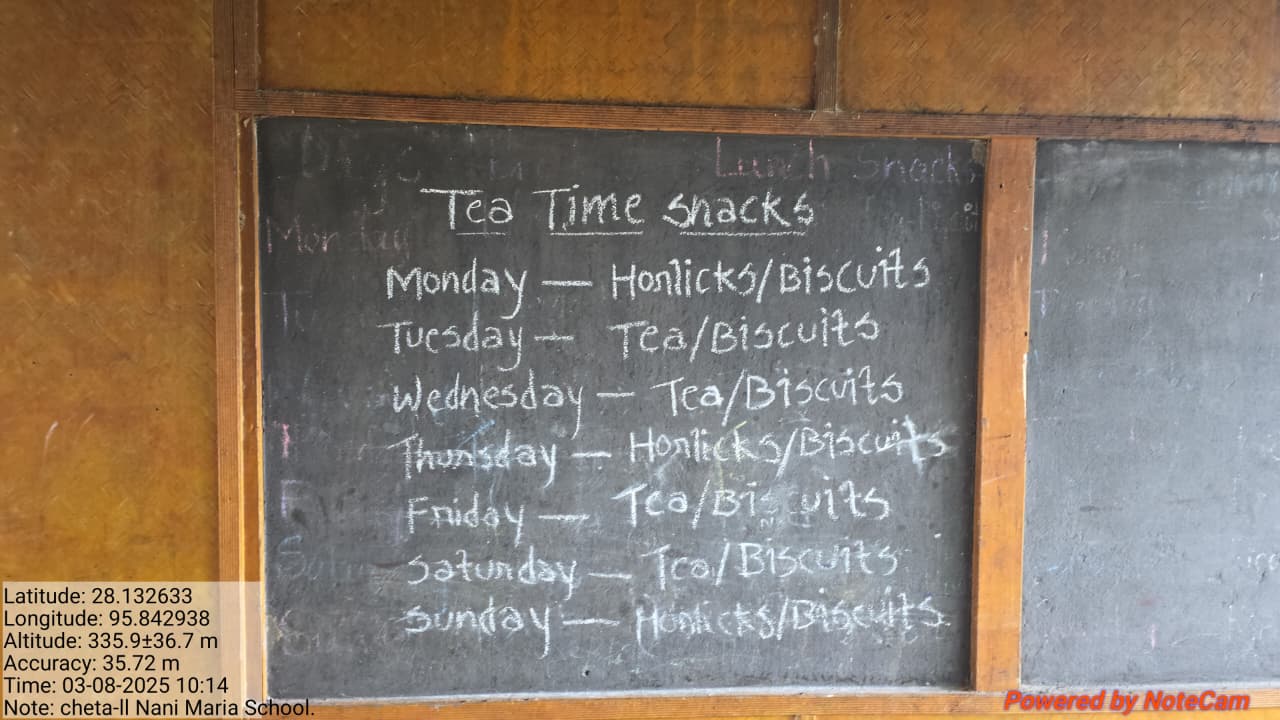 Lunch Snacks
Tea Time snacks
Monday
Monday — Honlicks/Biscuits
Tuesday — Tea/Biscuits
Wednesday — Tea/Biscuits
Thursday — Honlicks/Biscuits
Friday — Tea/Biscuits
Saturday — Tea/Biscuits
Sunday — Honlicks/Biscuits
Latitude: 28.132633
Longitude: 95.842938
Altitude: 335.9±36.7 m
Accuracy: 35.72 m
Time: 03-08-2025 10:14
Note: cheta-ll Nani Maria School.
Powered by NoteCam